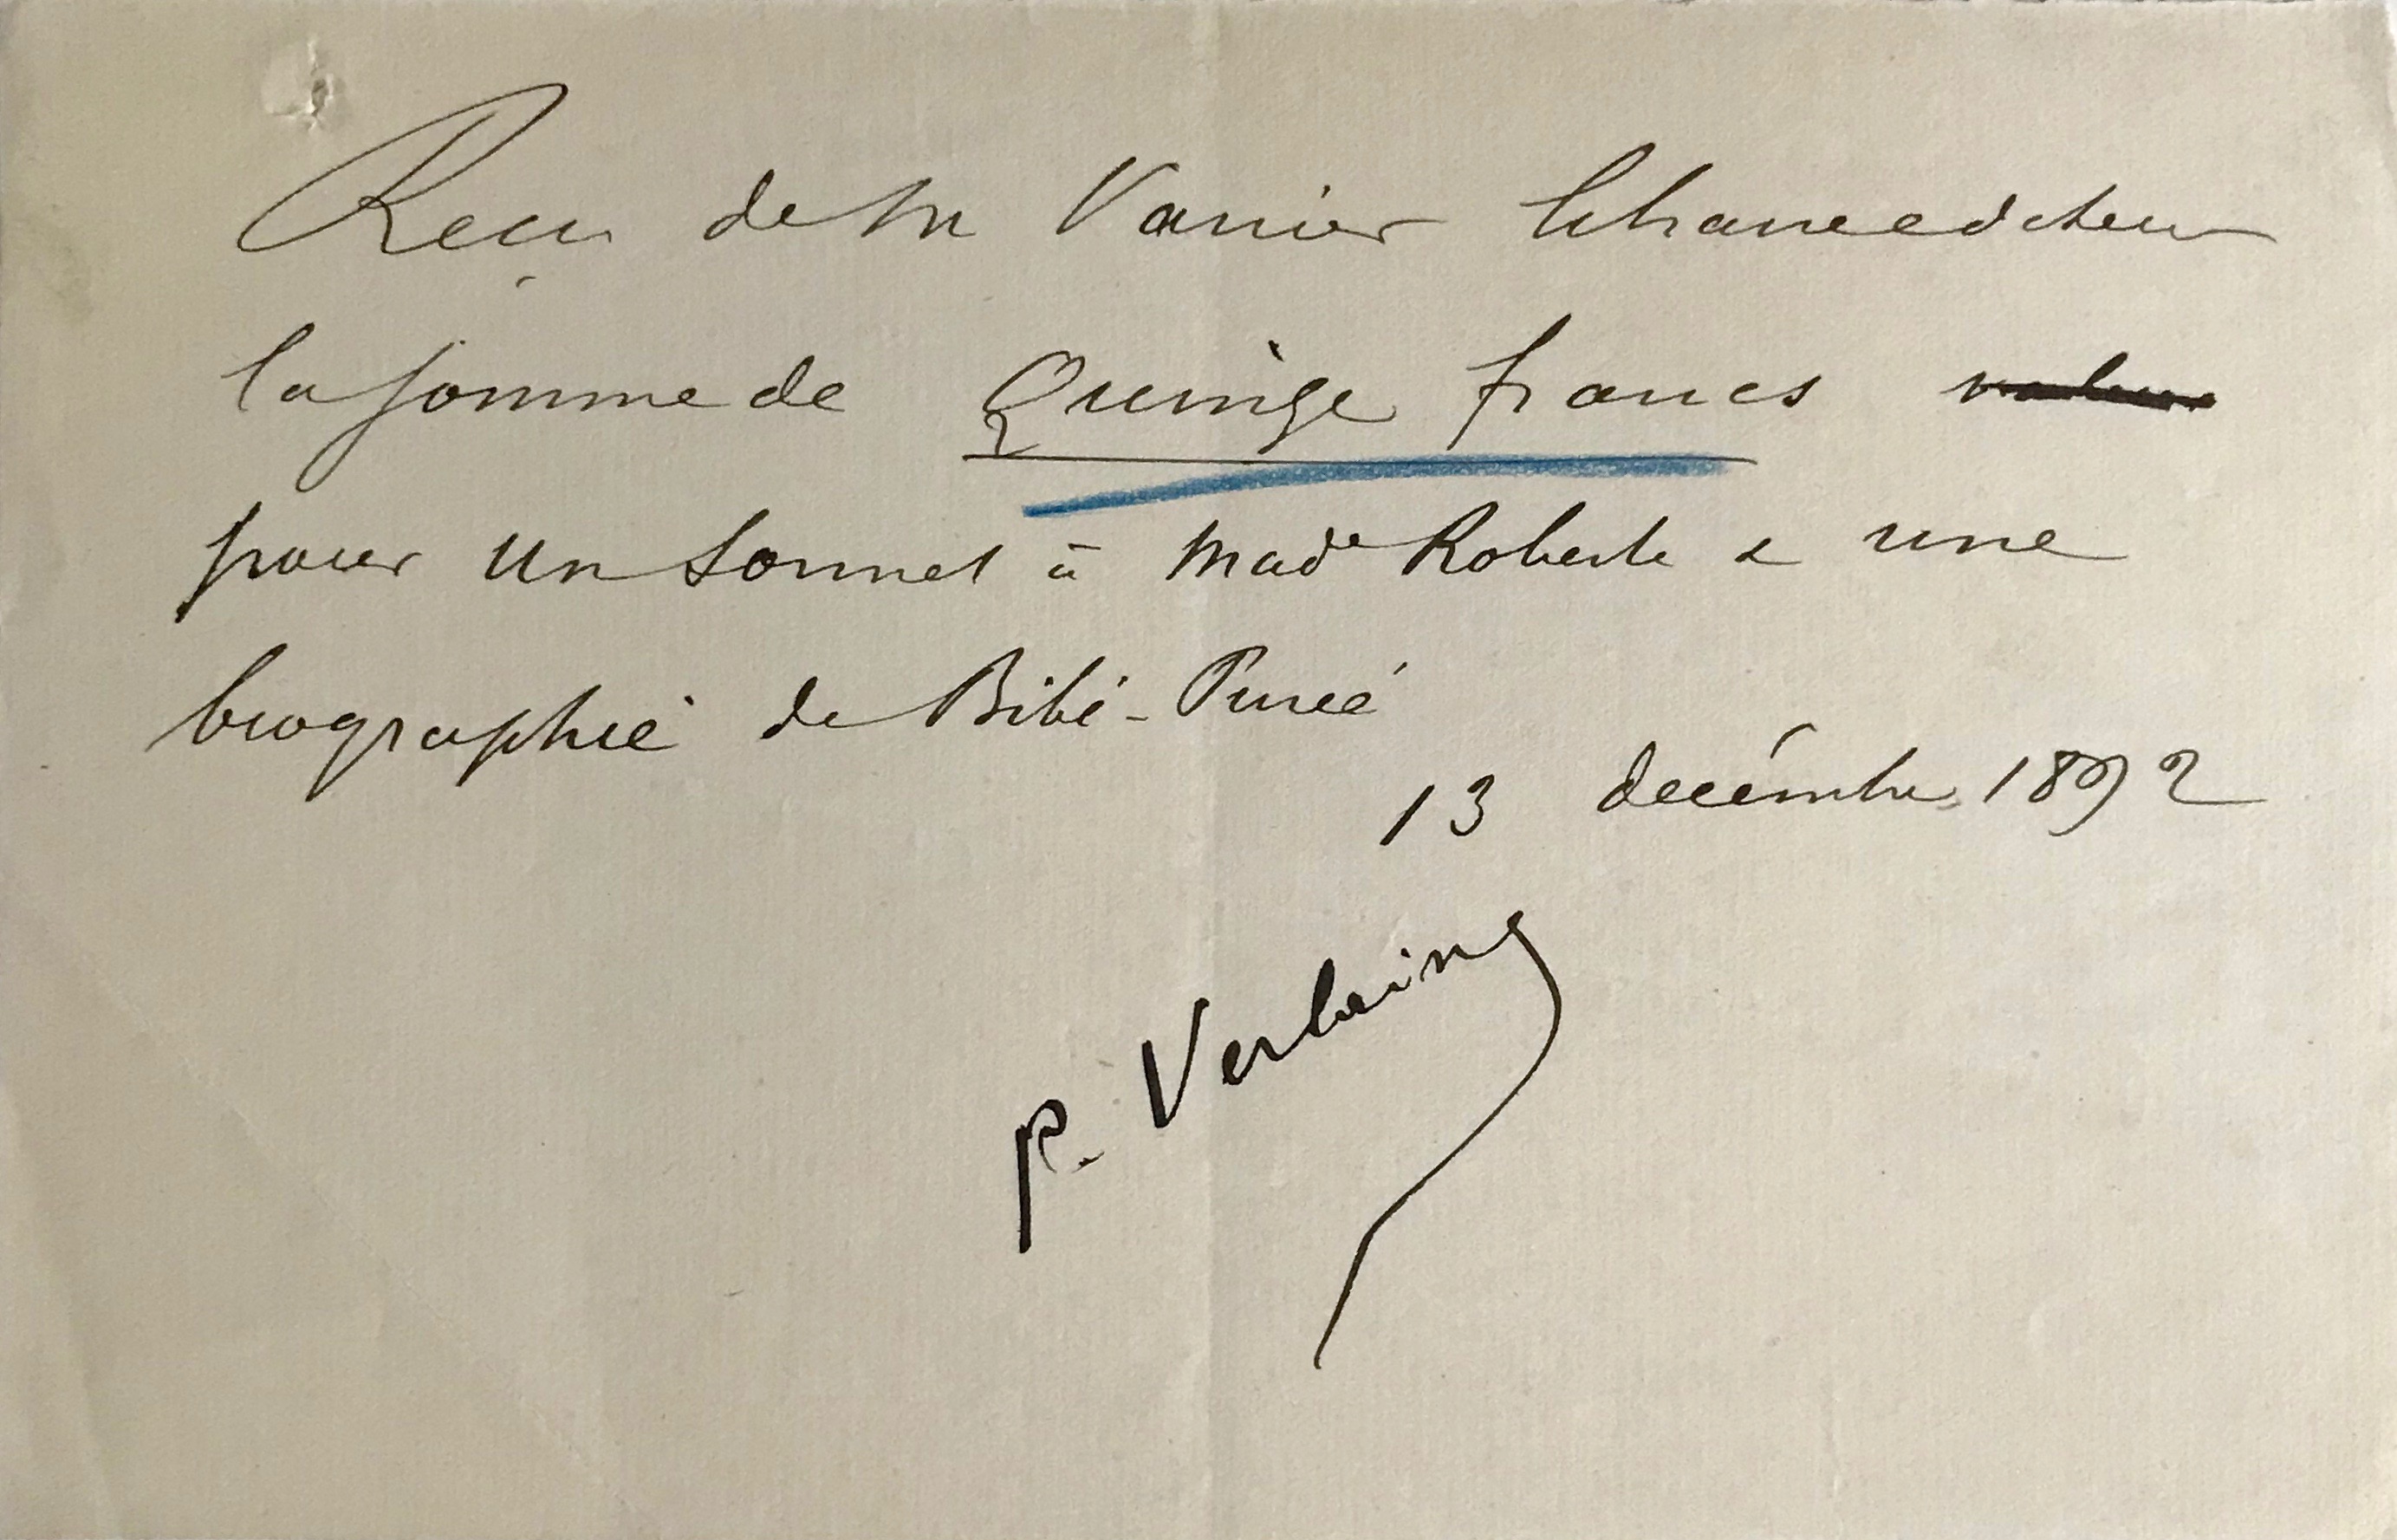 Reçu de M Vanier libraire editeur
la somme de Quinze francs valeur
pour un Sonnet à Made Roberte & une
biographie de Bibi-Purée
13 décembre 1892
P. Verlaine